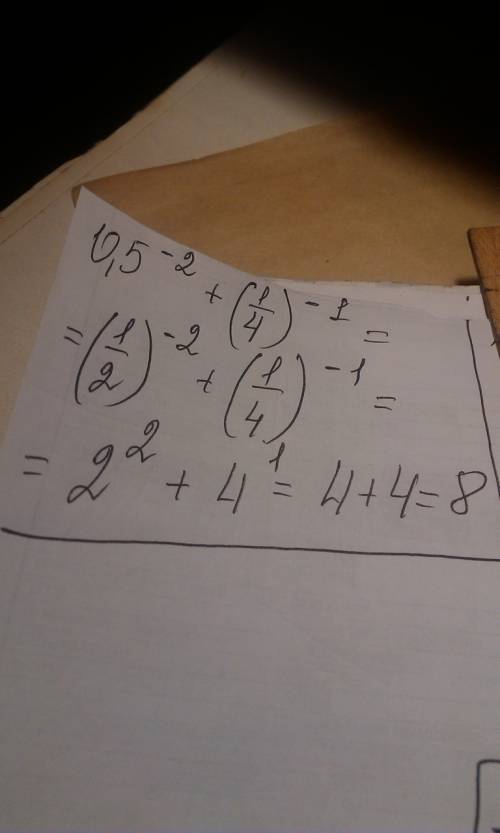 0,5⁻² + (1/4)⁻¹ =
= (1/2)⁻² + (1/4)⁻¹ =
= 2² + 4¹ = 4 + 4 = 8